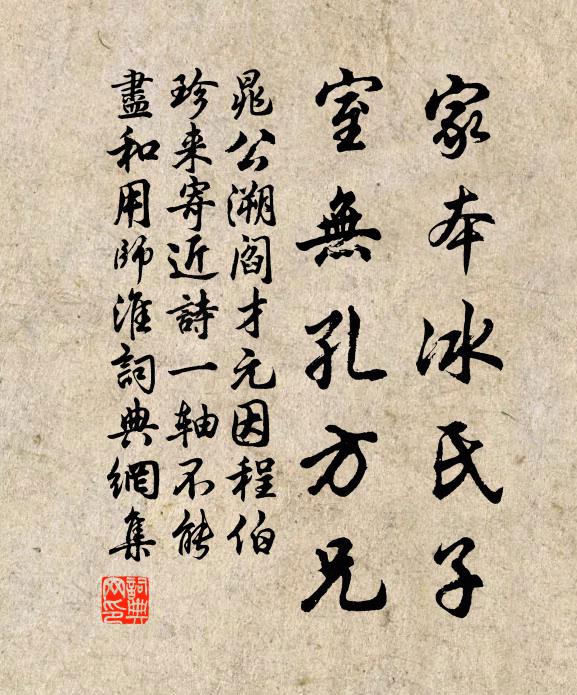 家本冰氏子
室無孔方兄
晁公溯阎才元因程伯
珍来寄近詩一轴不能
盡和用師淮詞典網集
詞典